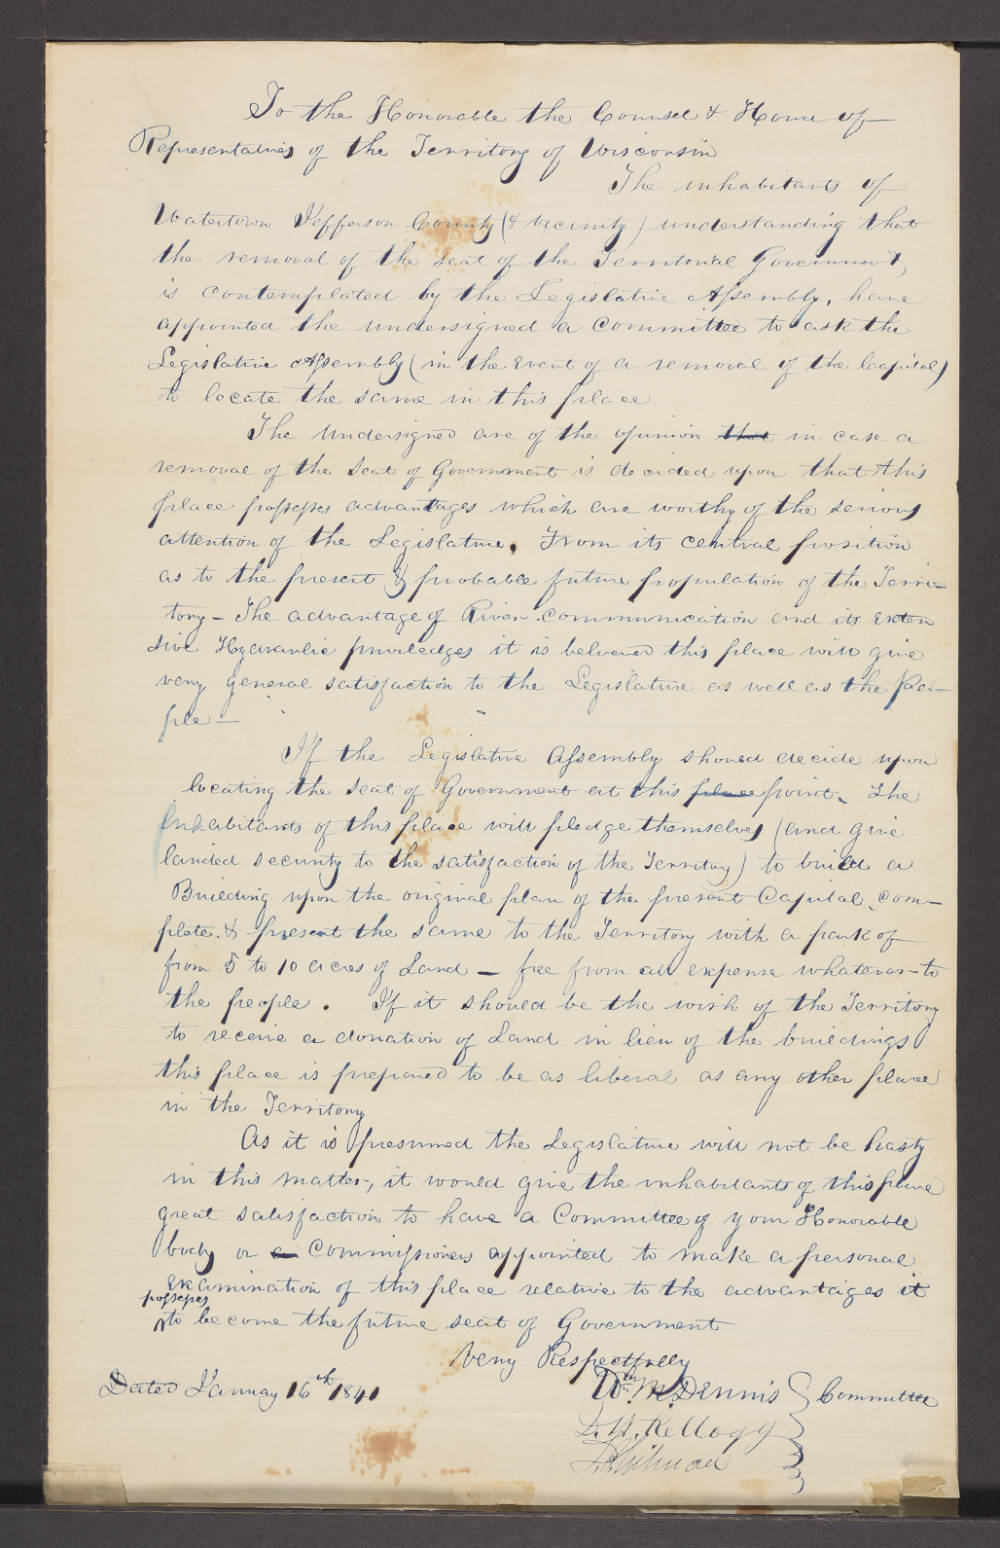 To the Honorable the Counsel & House of
Representatives of the Territory of Wisconsin
The inhabitants of
Watertown Jefferson County (& vicinity) understanding that
the removal of the seat of the Territorial Government
is contemplated by the Legislative Assembly, have
appointed the undersigned a Committee to ask the
Legislative Assembly (in the event of a removal of the Capital)
to locate the same in this place
The Undersigned are of the opinion that in case a
removal of the Seat of Government is decided upon that this
place possesses advantages which are worthy of the serious
attention of the Legislature. From its central position
as to the present & probable future population of the Terri-
tory - The advantage of River communication and its exten
sive Hydraulic priviledges it is believed this place will give
very general satisfaction to the Legislature as well as the Peo-
ple -
If the Legislative Assembly should decide upon
locating the seat of Government at this place point. The
Inhabitants of this place will pledge themselves (and give
landed security to the satisfaction of the Territory) to build a
Building upon the original plan of the present Capital, com-
plete. & present the same to the Territory with a park of
from 5 to 10 acres of Land - free from all expense whatever - to
the people. If it should be the wish of the Territory
to receive a donation of Land in lieu of the buildings
this place is prepared to be as liberal as any other place
in the Territory
As it is presumed the Legislature will not be hasty
in this matter, it would give the inhabitants of this place
great satisfaction to have a Committee of your Honorable
body or a Commissioners appointed to make a personal
examination of this place relative to the advantages it
possesses
to become the future seat of Government
Very Respectfully
Dated January 16th 1841
Wm. M. Dennis } Committee
D. W. Kellogg